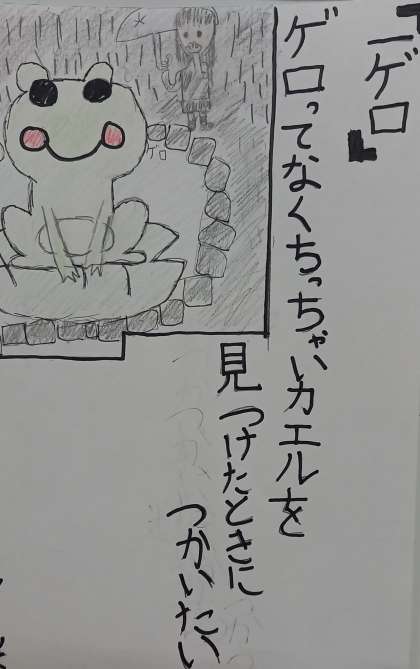 「一ゲロ」
ゲロってなくちっちゃいカエルを
見つけたときに
つかいたい
ゲロ